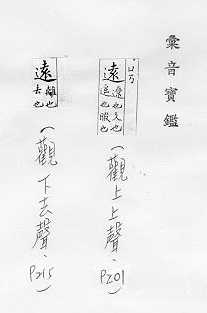 彙音寶鑑
ㄩㄢˇ
遠 遼也久也遙也暇也
(觀上上聲、P201)
遠 離也去也
(觀下去聲、P215)